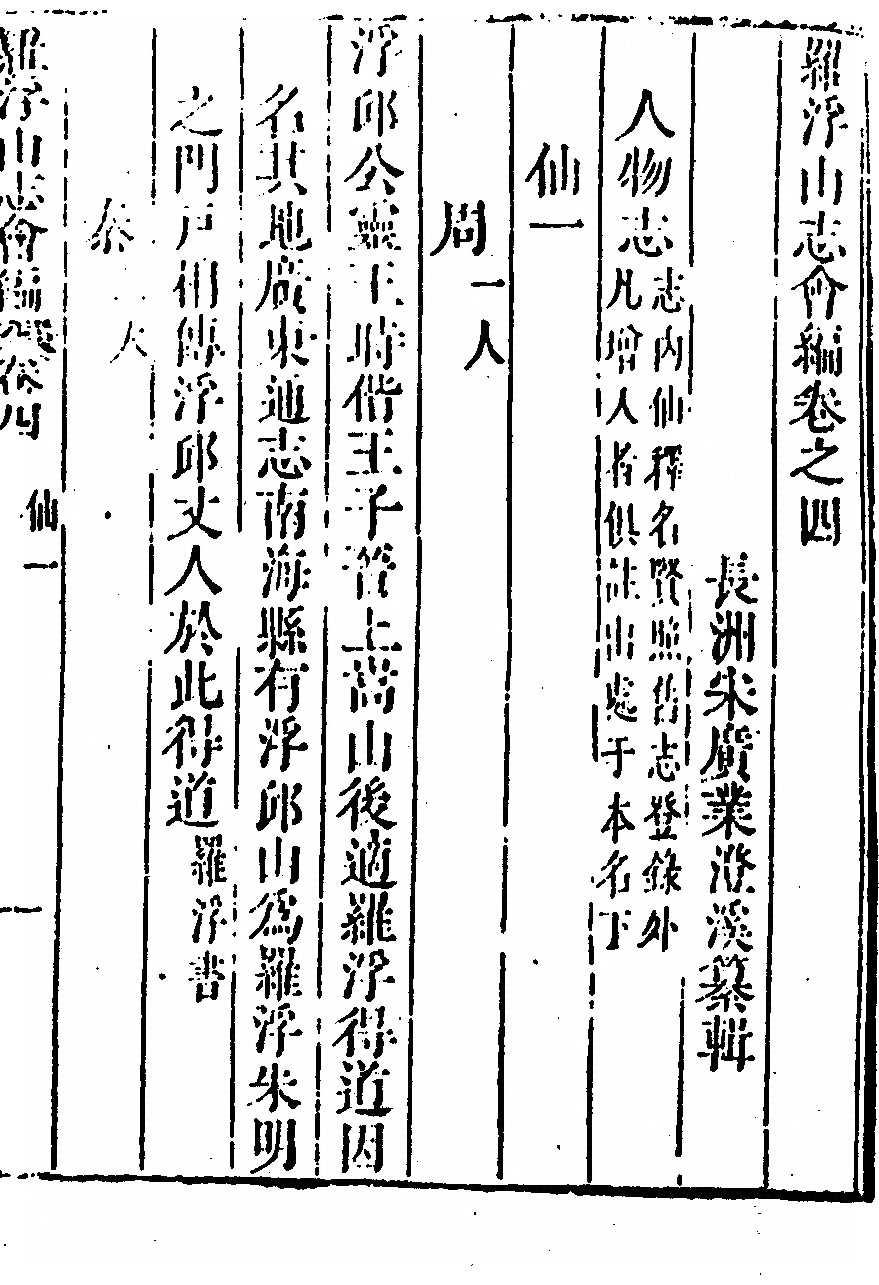 羅浮山志會編卷之四
長洲朱廣業澄溪纂輯
人物志
志內仙釋名賢照舊志登錄外
凡增人者俱註出處于本名下
仙一
周一人
浮邱公靈王時偕王子晉上嵩山後適羅浮得道因
名其地廣東通志南海縣有浮邱山爲羅浮朱明
之門戶相傳浮邱丈人於此得道羅浮書
秦 人
羅浮山志會編 卷四 仙一 一